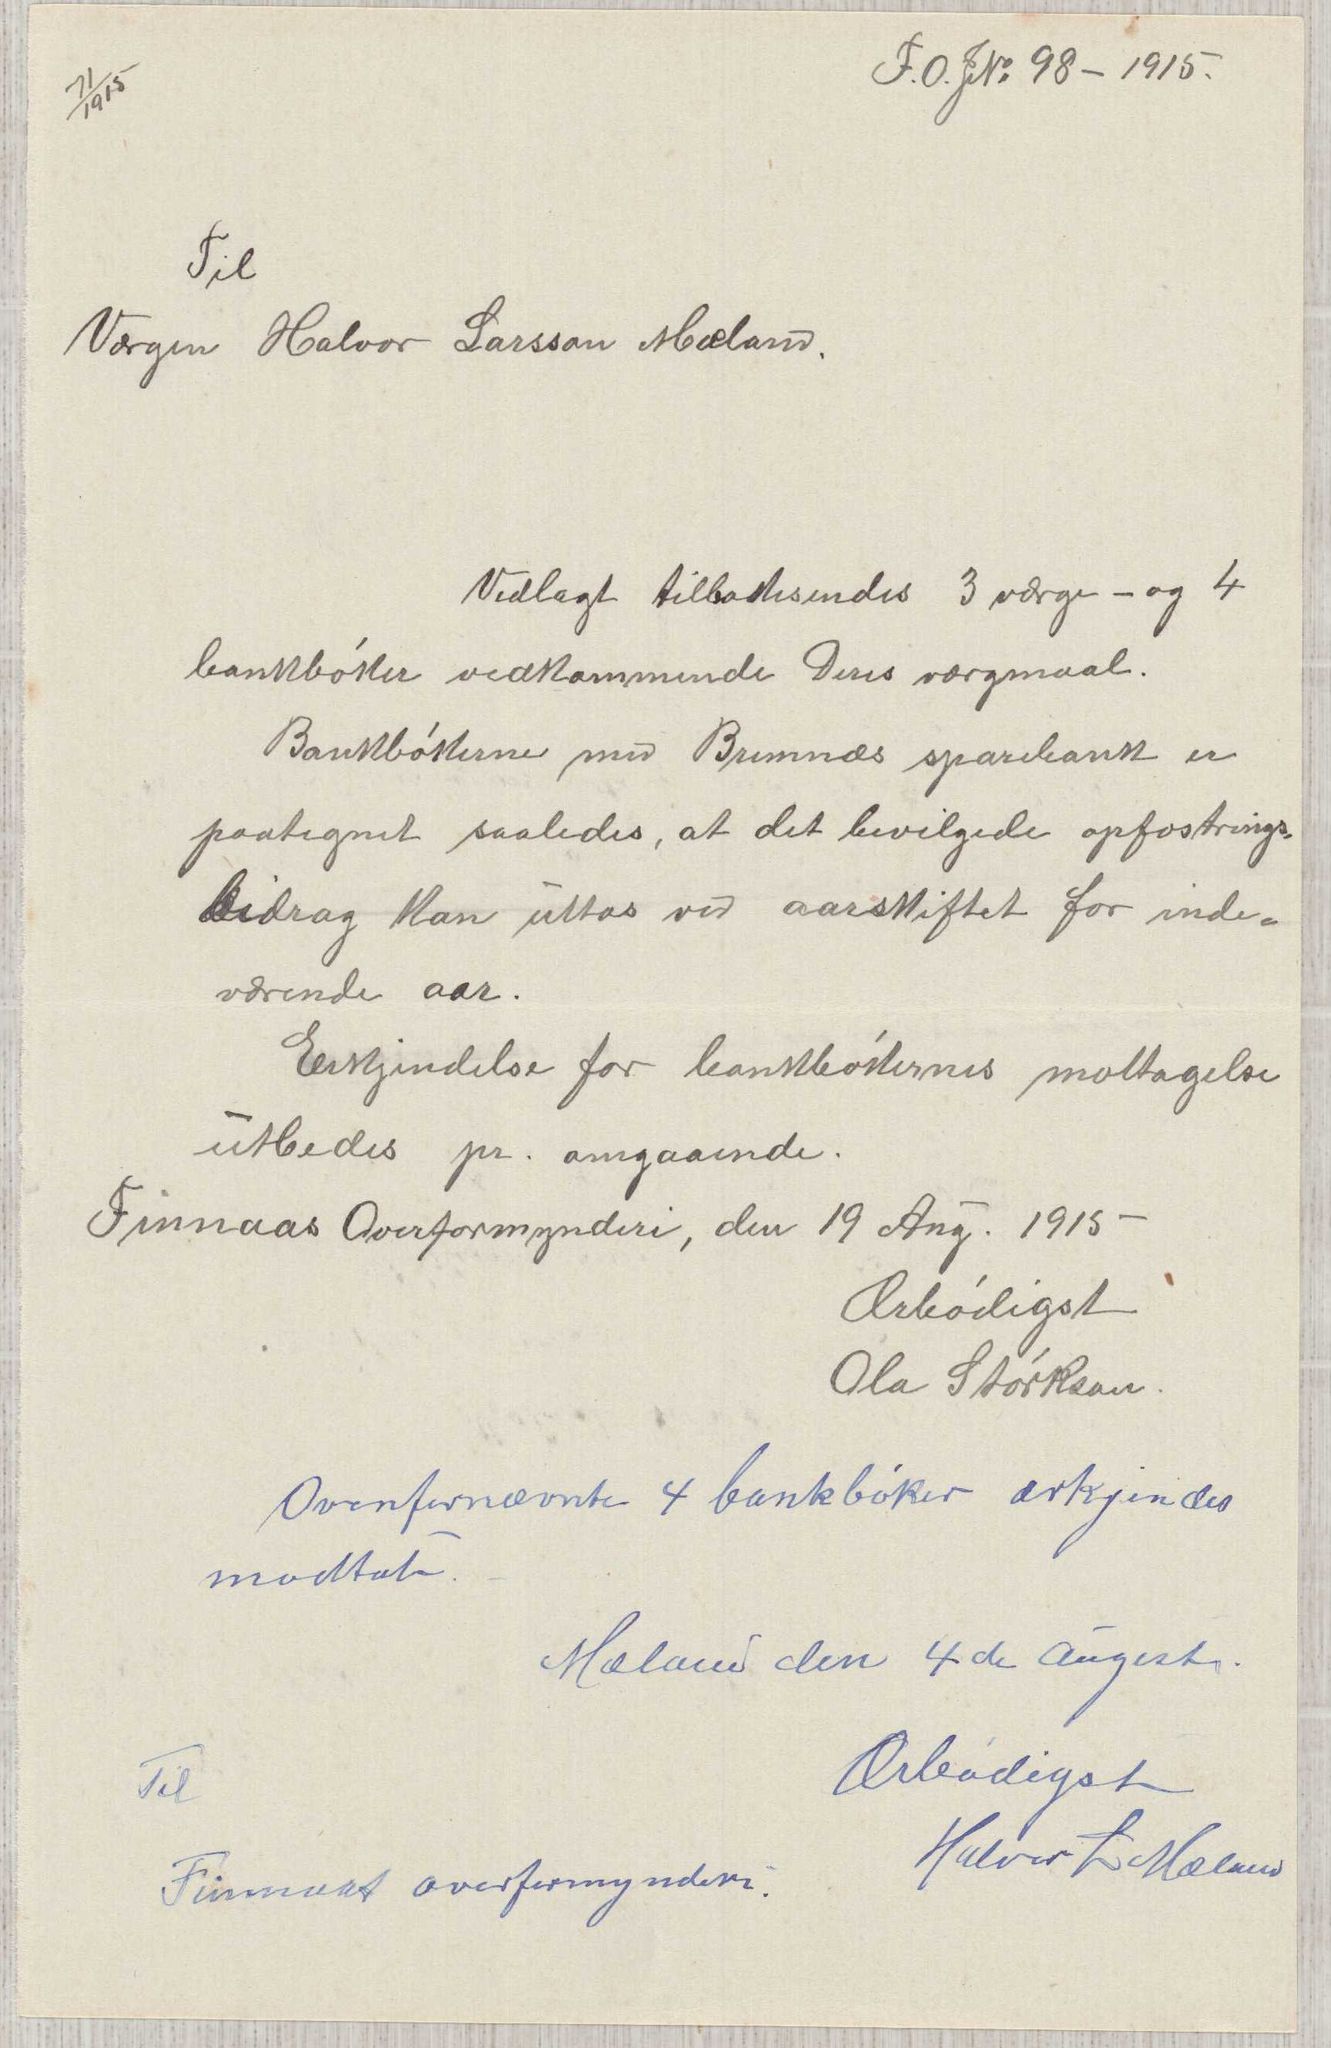 71/1915
F.O.J.No. 98 – 1915.
Til
Værgen Halvor Larsson Mæland.
Vedlagt tilbakesendes 3 værge – og 4
bankbóker vedkommende Deres værgmaal.
Bankbókerne med Bremnæs sparebank er
paategnet saaledes, at det bevilgede opfostrings-
bidrag kan uttas ved aarskiftet for inde-
værende aar.
Erkjendelse for bankbókernes mottagelse
utbedes pr. omgaaende.
Finnaas Overformynderi, den 19 Aug. 1915
Ærbódigst
Ola Stórkson.
Ovenfornævnte 4 bankbóker ærkjendes
modtat.
Mæland den 4de August.
Ærbódigst
Halvor L Mæland
Til
Finnaas overformynderi.